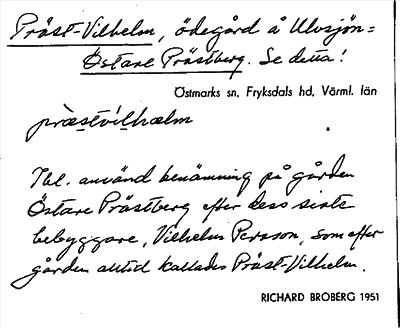 Präst-Vilhelm, ödegård å Ulvsjön=
Östare Prästberg. Se detta!
Östmarks sn, Fryksdals hd, Värml. län
præstvilhælm
Ibl. använd benämning på gården
Östare Prästberg efter dess siste
bebyggare, Vilhelm Persson, som efter
gården alltid kallades Präst-Vilhelm.
RICHARD BROBERG 1951